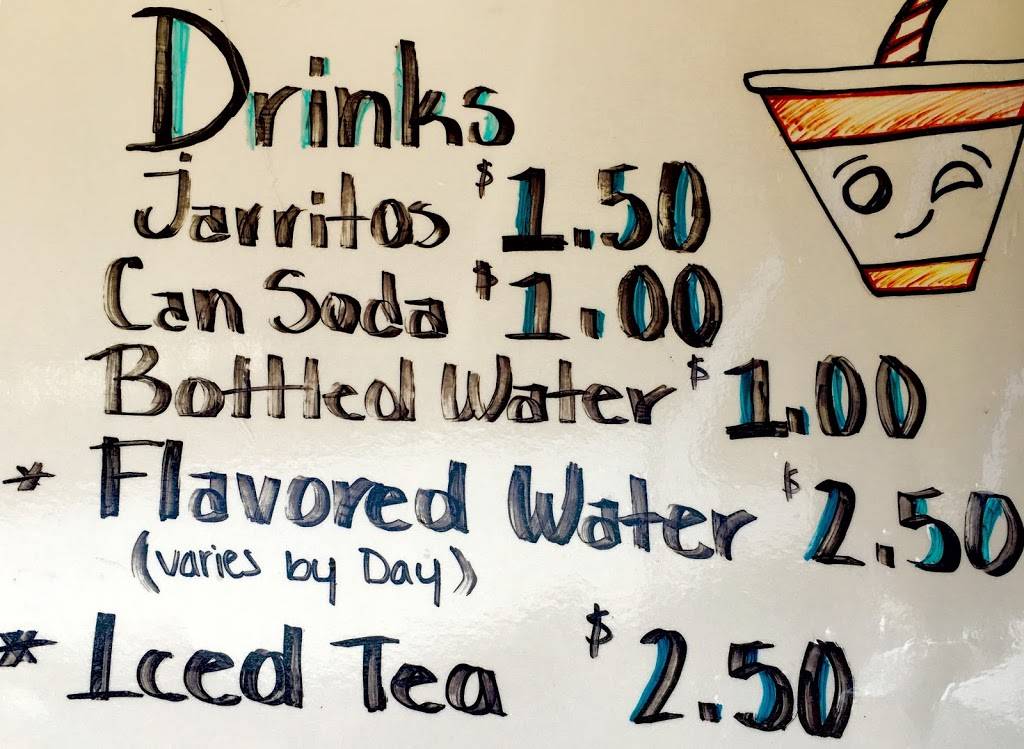 Drinks
Jarritos $1.50
Can Soda $1.00
Bottled Water $1.00
* Flavored Water $2.50
(varies by Day)
* Iced Tea $2.50